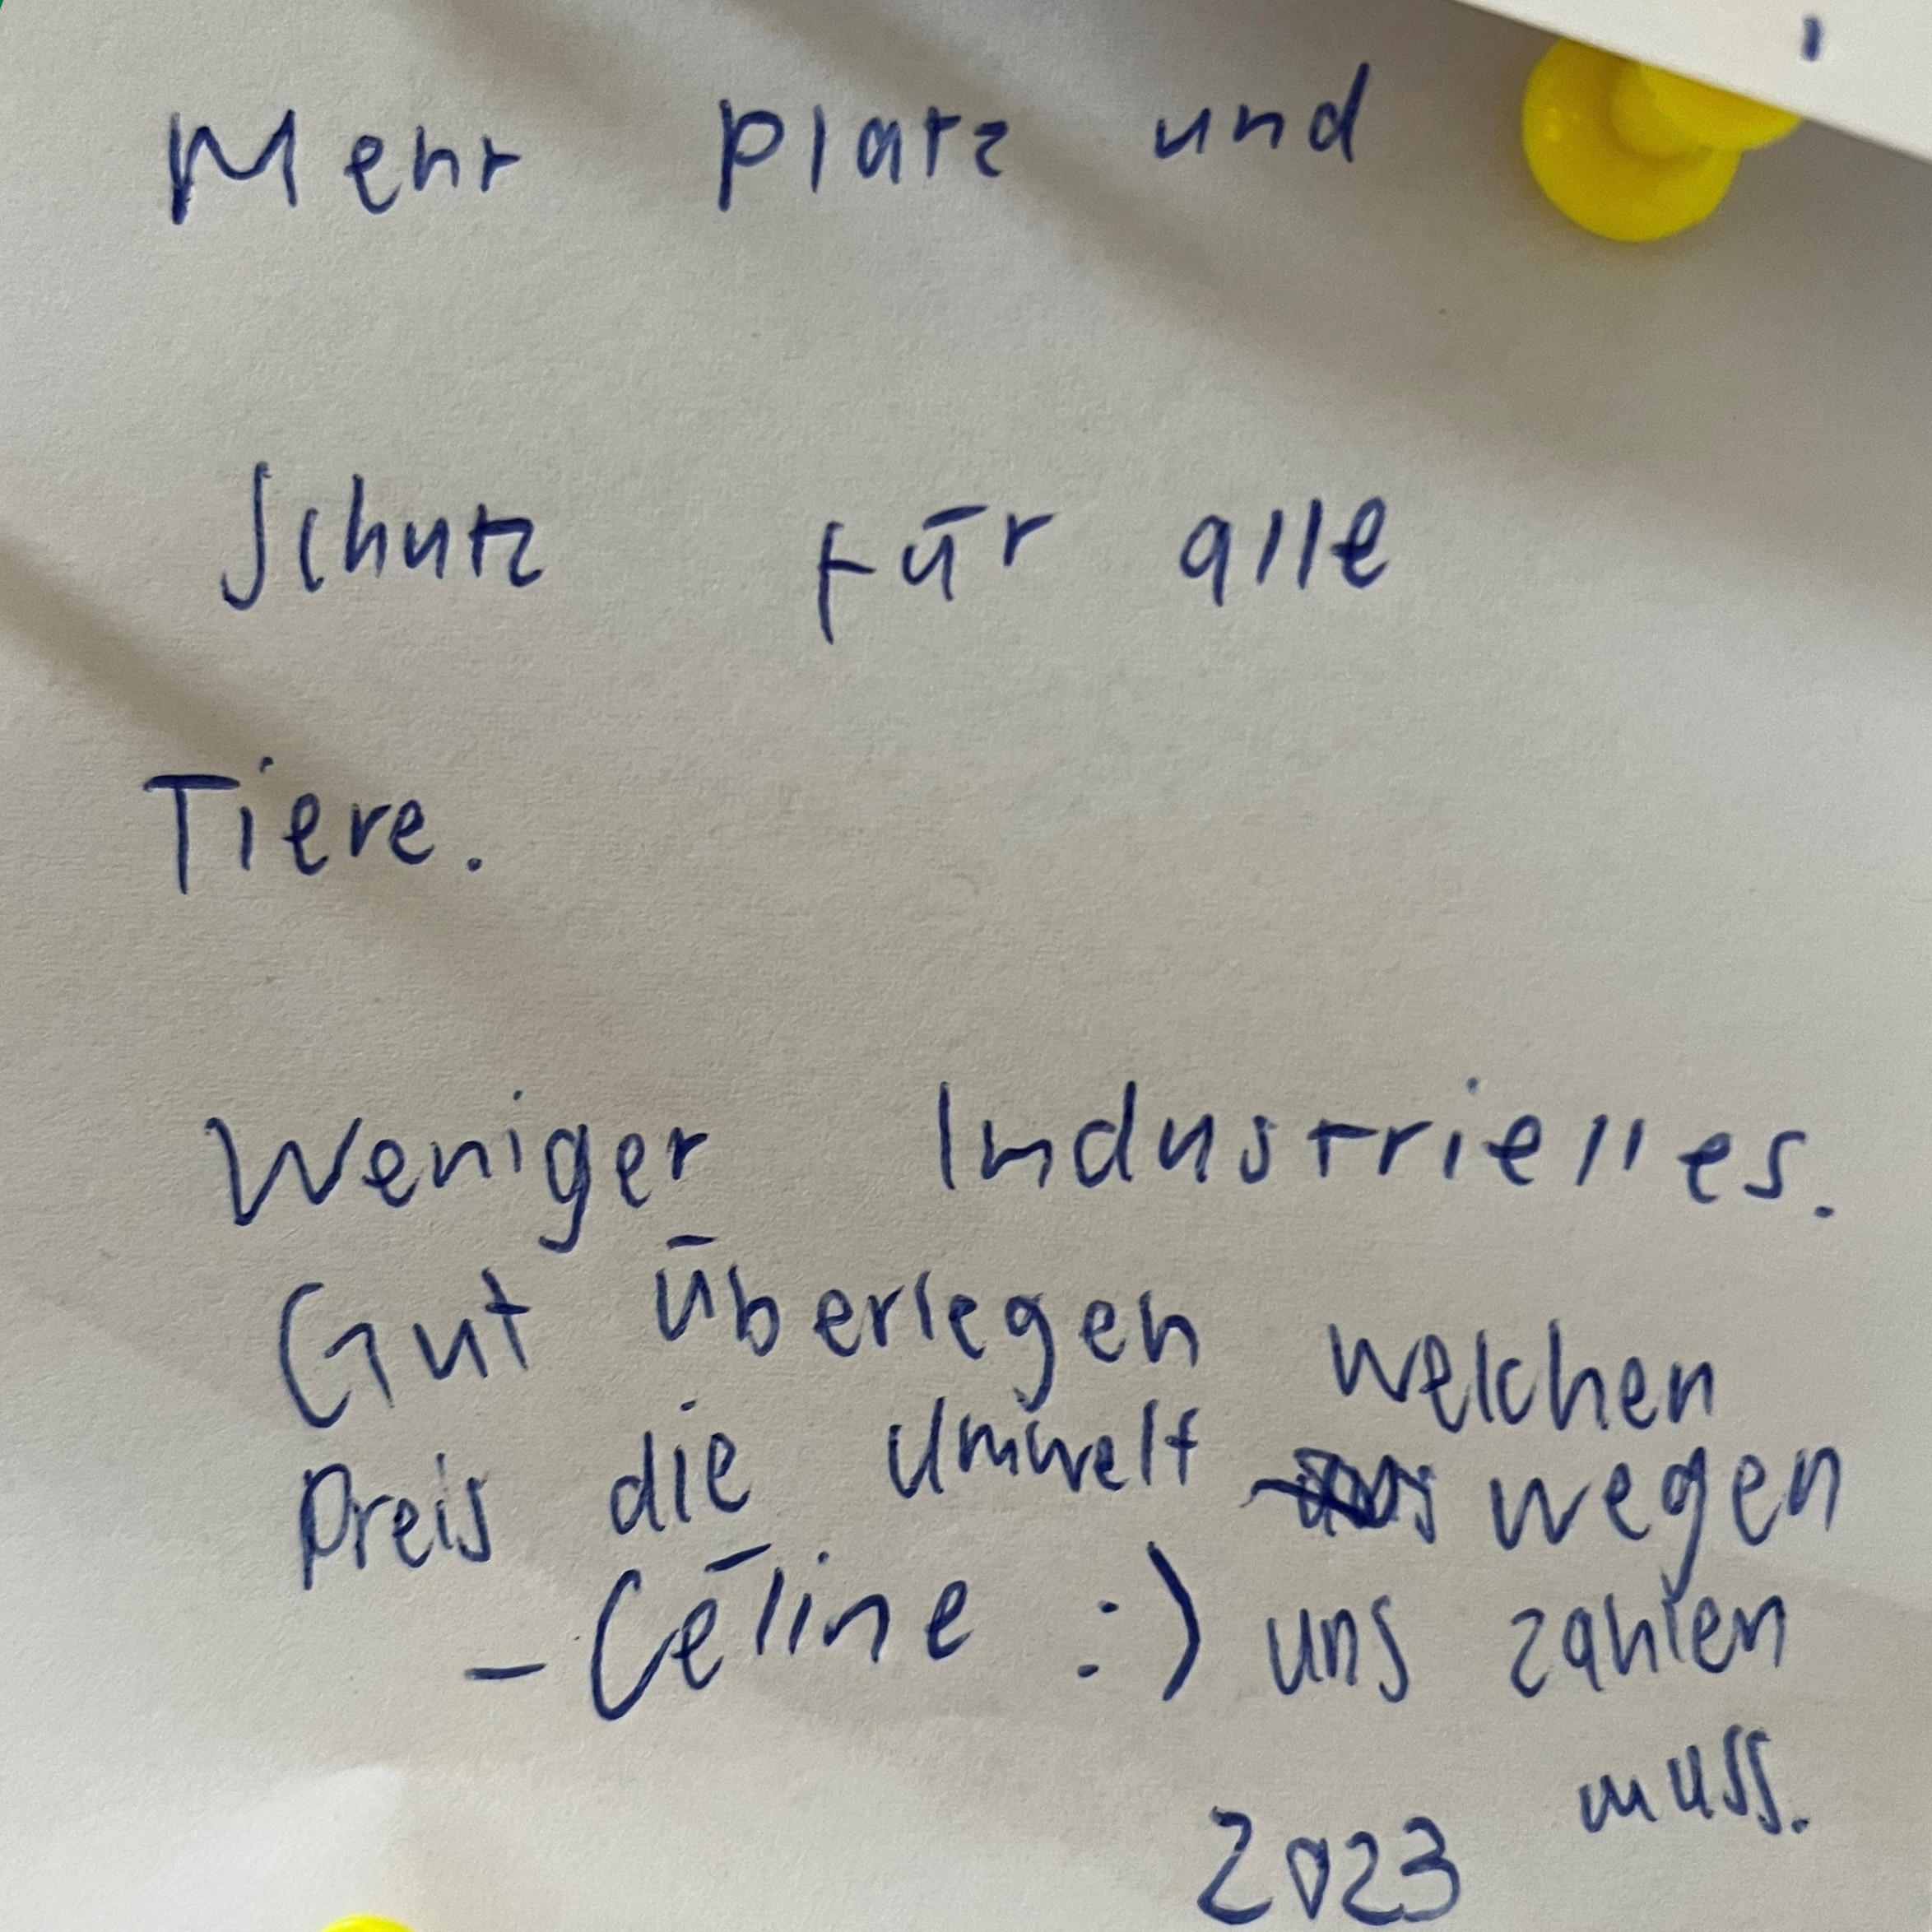 Mehr Platz und
Schutz für alle
Tiere.
Weniger Industrielles.
Gut überlegen welchen
Preis die Umwelt wegen
uns zahlen
muss.
- Céline :)
2023